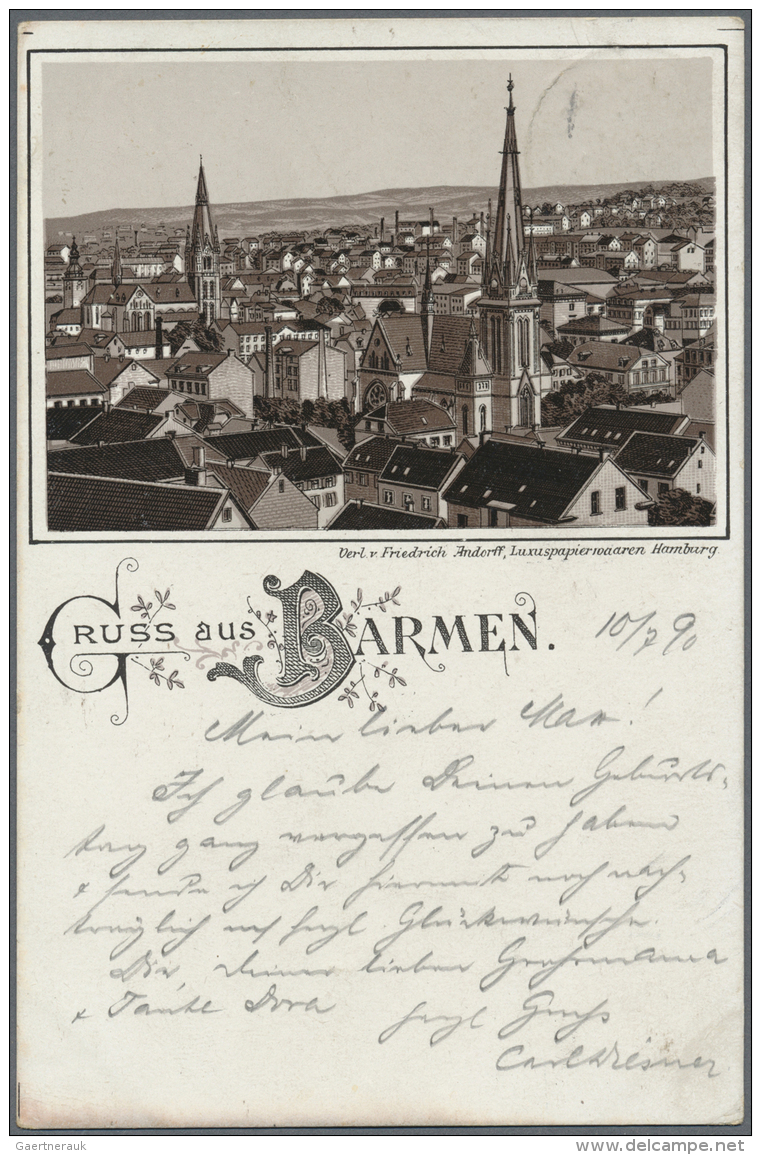 Verl. v. Friedrich Andorff, Luxuspapierwaaren Hamburg.
GRUSS aus BARMEN.
10/7 90
Mein lieber Max!
Ich glaube Deinen Geburts-
tag ganz vergessen zu haben
& sende ich Dir hiermit noch nach-
träglich m/ herzl. Glückwünsche.
Dir, deiner lieben Grossmama
& Tante Dora
herzl Gruss
Carl Wiesner
Gaertnerauk
www.delcampe.net